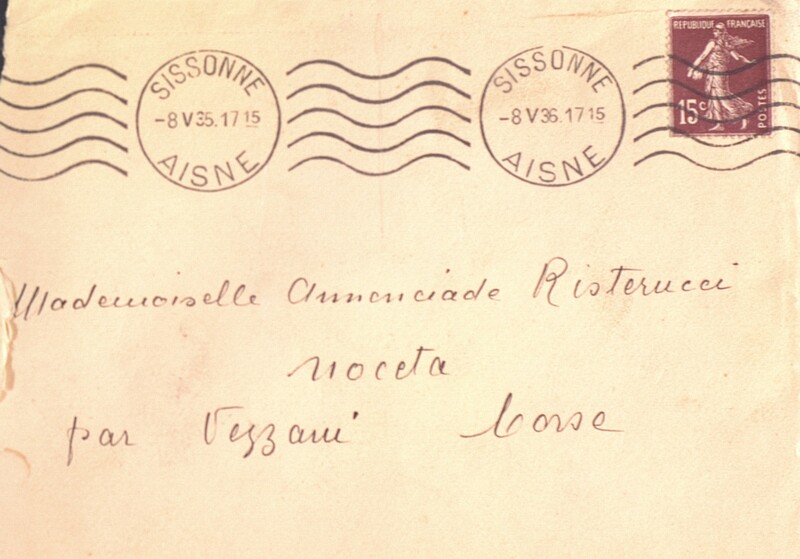 SISSONNE
-8 V 35.17 15
AISNE
SISSONNE
-8 V 36.17 15
AISNE
REPUBLIQUE FRANÇAISE
15c
POSTES
Mademoiselle Annonciade Risterucci
Noceta
par Vezzani Corse